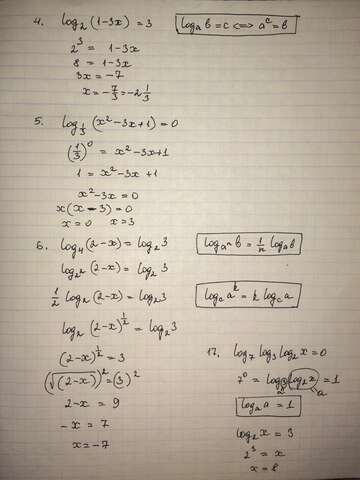 4. log₂(1-3x) = 3
logₐ b = c <=> aᶜ = b
2³ = 1-3x
8 = 1-3x
3x = -7
x = -7/3 = -2 1/3
5. log_{1/3} (x²-3x+1) = 0
(1/3)⁰ = x²-3x+1
1 = x²-3x+1
x²-3x = 0
x(x-3) = 0
x = 0 x = 3
6. log₄(2-x) = log₂3
log_{aⁿ} b = 1/n logₐb
log_{2²} (2-x) = log₂3
1/2 log₂(2-x) = log₂3
log_c aᵏ = k log_c a
log₂(2-x)^{1/2} = log₂3
(2-x)^{1/2} = 3
(√(2-x))² = (3)²
2-x = 9
-x = 7
x = -7
17. log₇ log₃ log₂ x = 0
7⁰ = log₃ log₂x = 1
a
logₐ a = 1
log₂ x = 3
2³ = x
x = 8